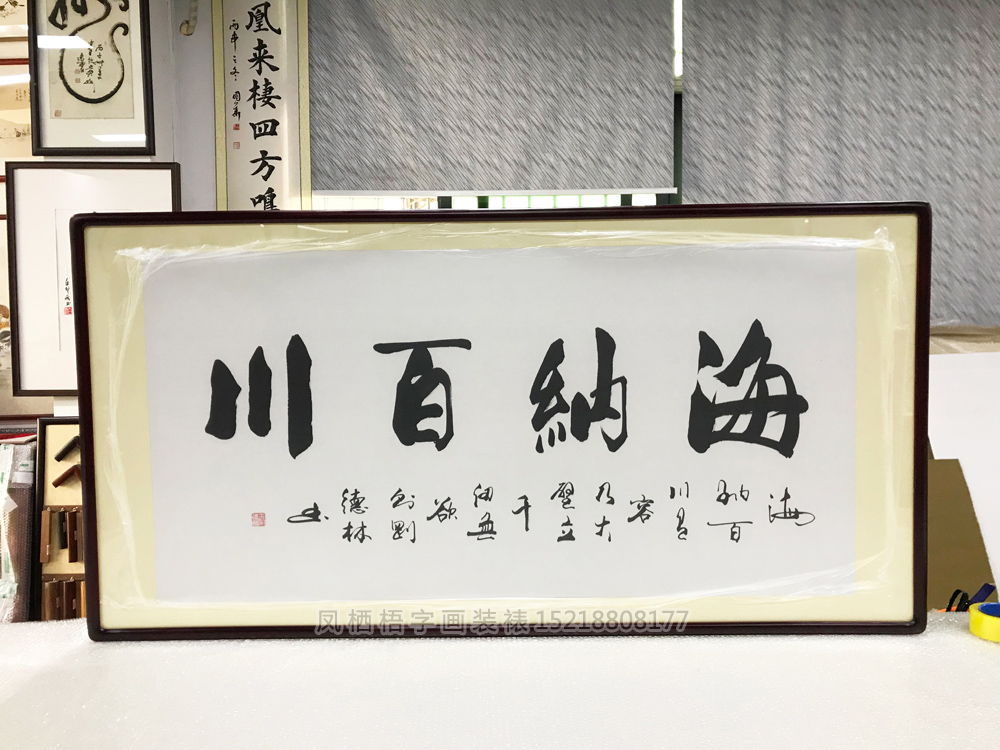 凰来棲四方鳴
海納百川
海
納百
川有
容
乃大
壁立
千
仞無
欲
則剛
德林
书
凤栖梧字画装裱15218808177